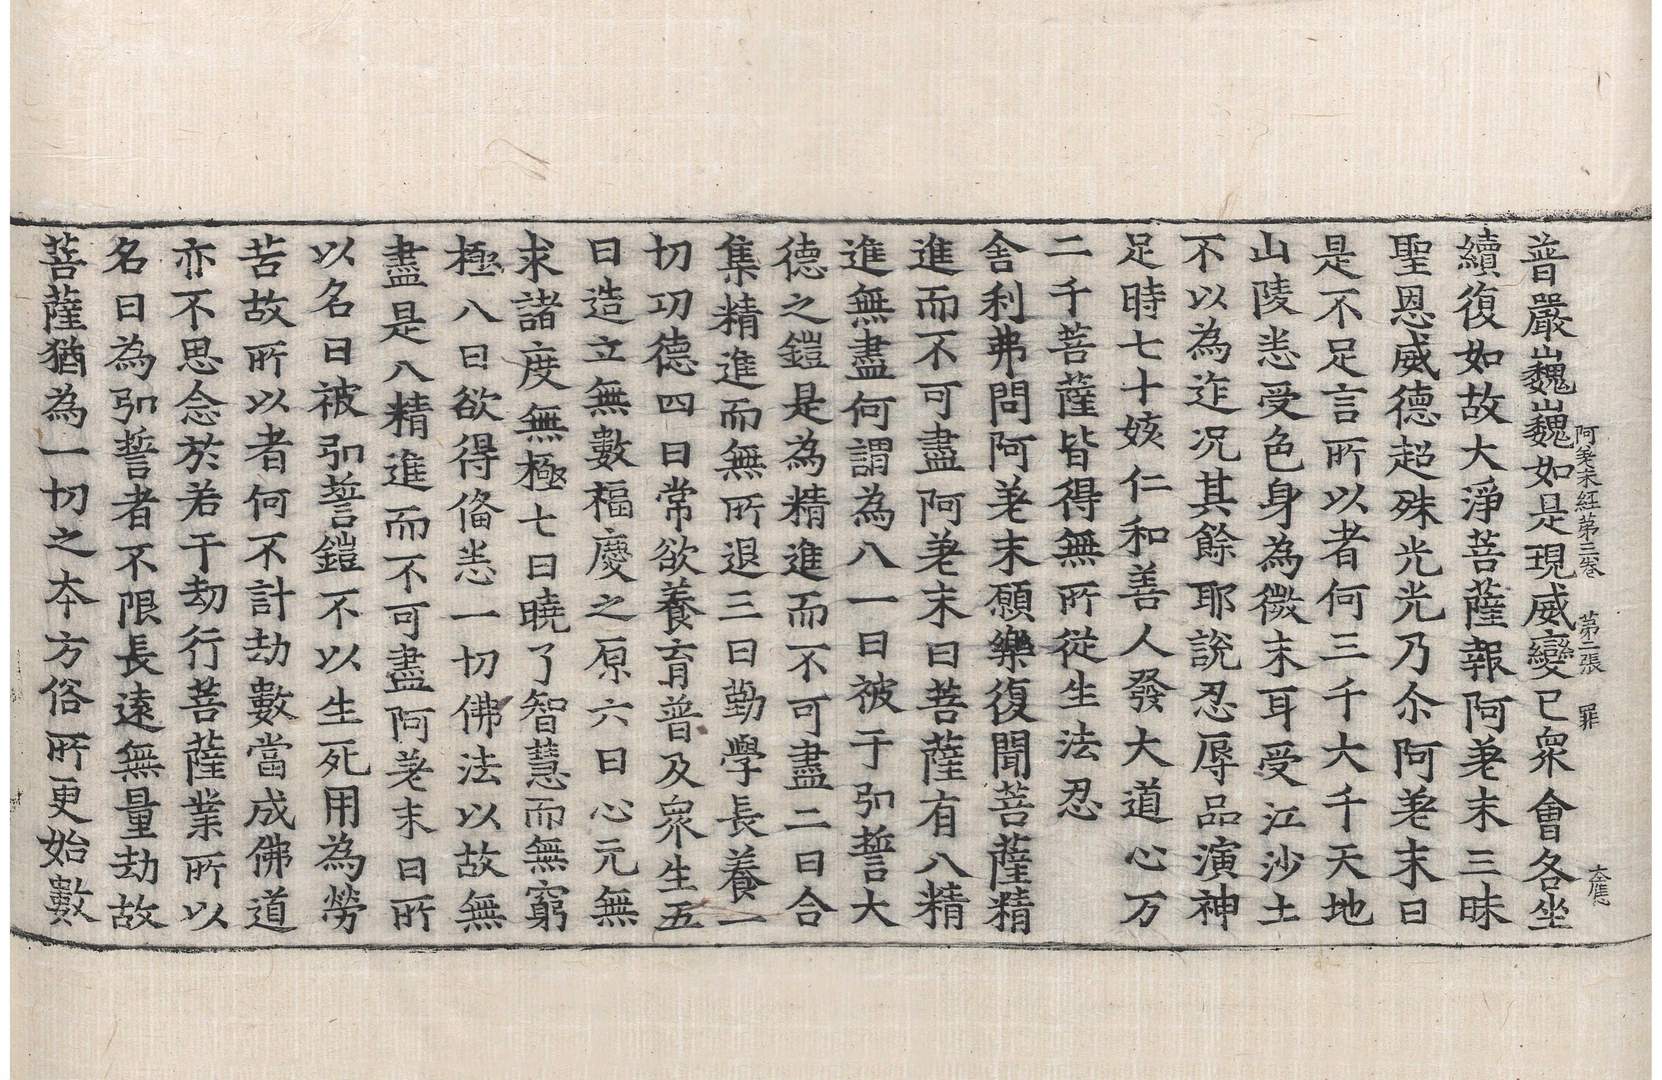 阿差末經第三卷　第二張　罪
普嚴巍巍如是現威變已衆會各坐
續復如故大淨菩薩報阿差末三昧
聖恩威德超殊光光乃尒阿差末曰
是不足言所以者何三千大千天地
山陵悉受色身為微末耳受江沙土
不以為迮况其餘耶說忍辱品演神
足時七十姟仁和善人發大道心万
二千菩薩皆得無所從生法忍
舍利弗問阿差末願樂復聞菩薩精
進而不可盡阿差末曰菩薩有八精
進無盡何謂為八一曰被于弘誓大
德之鎧是為精進而不可盡二曰合
集精進而無所退三曰勤學長養一
切功德四曰常欲養育普及衆生五
曰造立無數福慶之原六曰心元無
求諸度無極七曰曉了智慧而無窮
極八曰欲得俻悉一切佛法以故無
盡是八精進而不可盡阿差末曰所
以名曰被弘誓鎧不以生死用為勞
苦故所以者何不計劫數當成佛道
亦不思念於若干劫行菩薩業所以
名曰為弘誓者不限長遠無量劫故
菩薩猶為一切之夲方俗所更始數